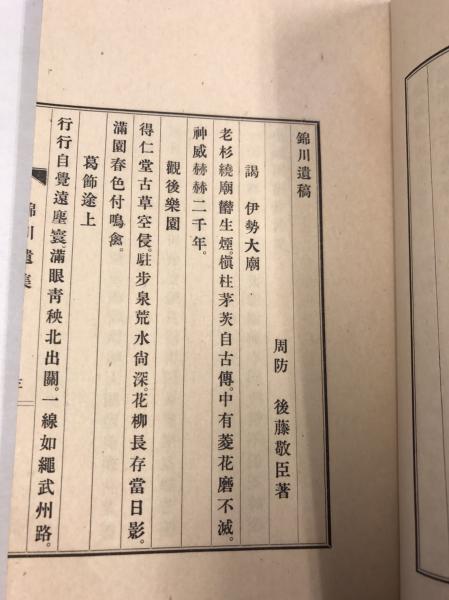 錦川遺稿
周防　後藤敬臣著
謁　伊勢大廟
老杉繞廟欝生煙。槇柱茅茨自古傳。中有菱花磨不滅。
神威赫赫二千年。
觀後樂園
得仁堂古草空侵。駐步泉荒水尙深。花柳長存當日影。
滿園春色付鳴禽。
葛飾途上
行行自覺遠塵寰。滿眼靑秧北出關。一線如繩武州路。
錦川遺集